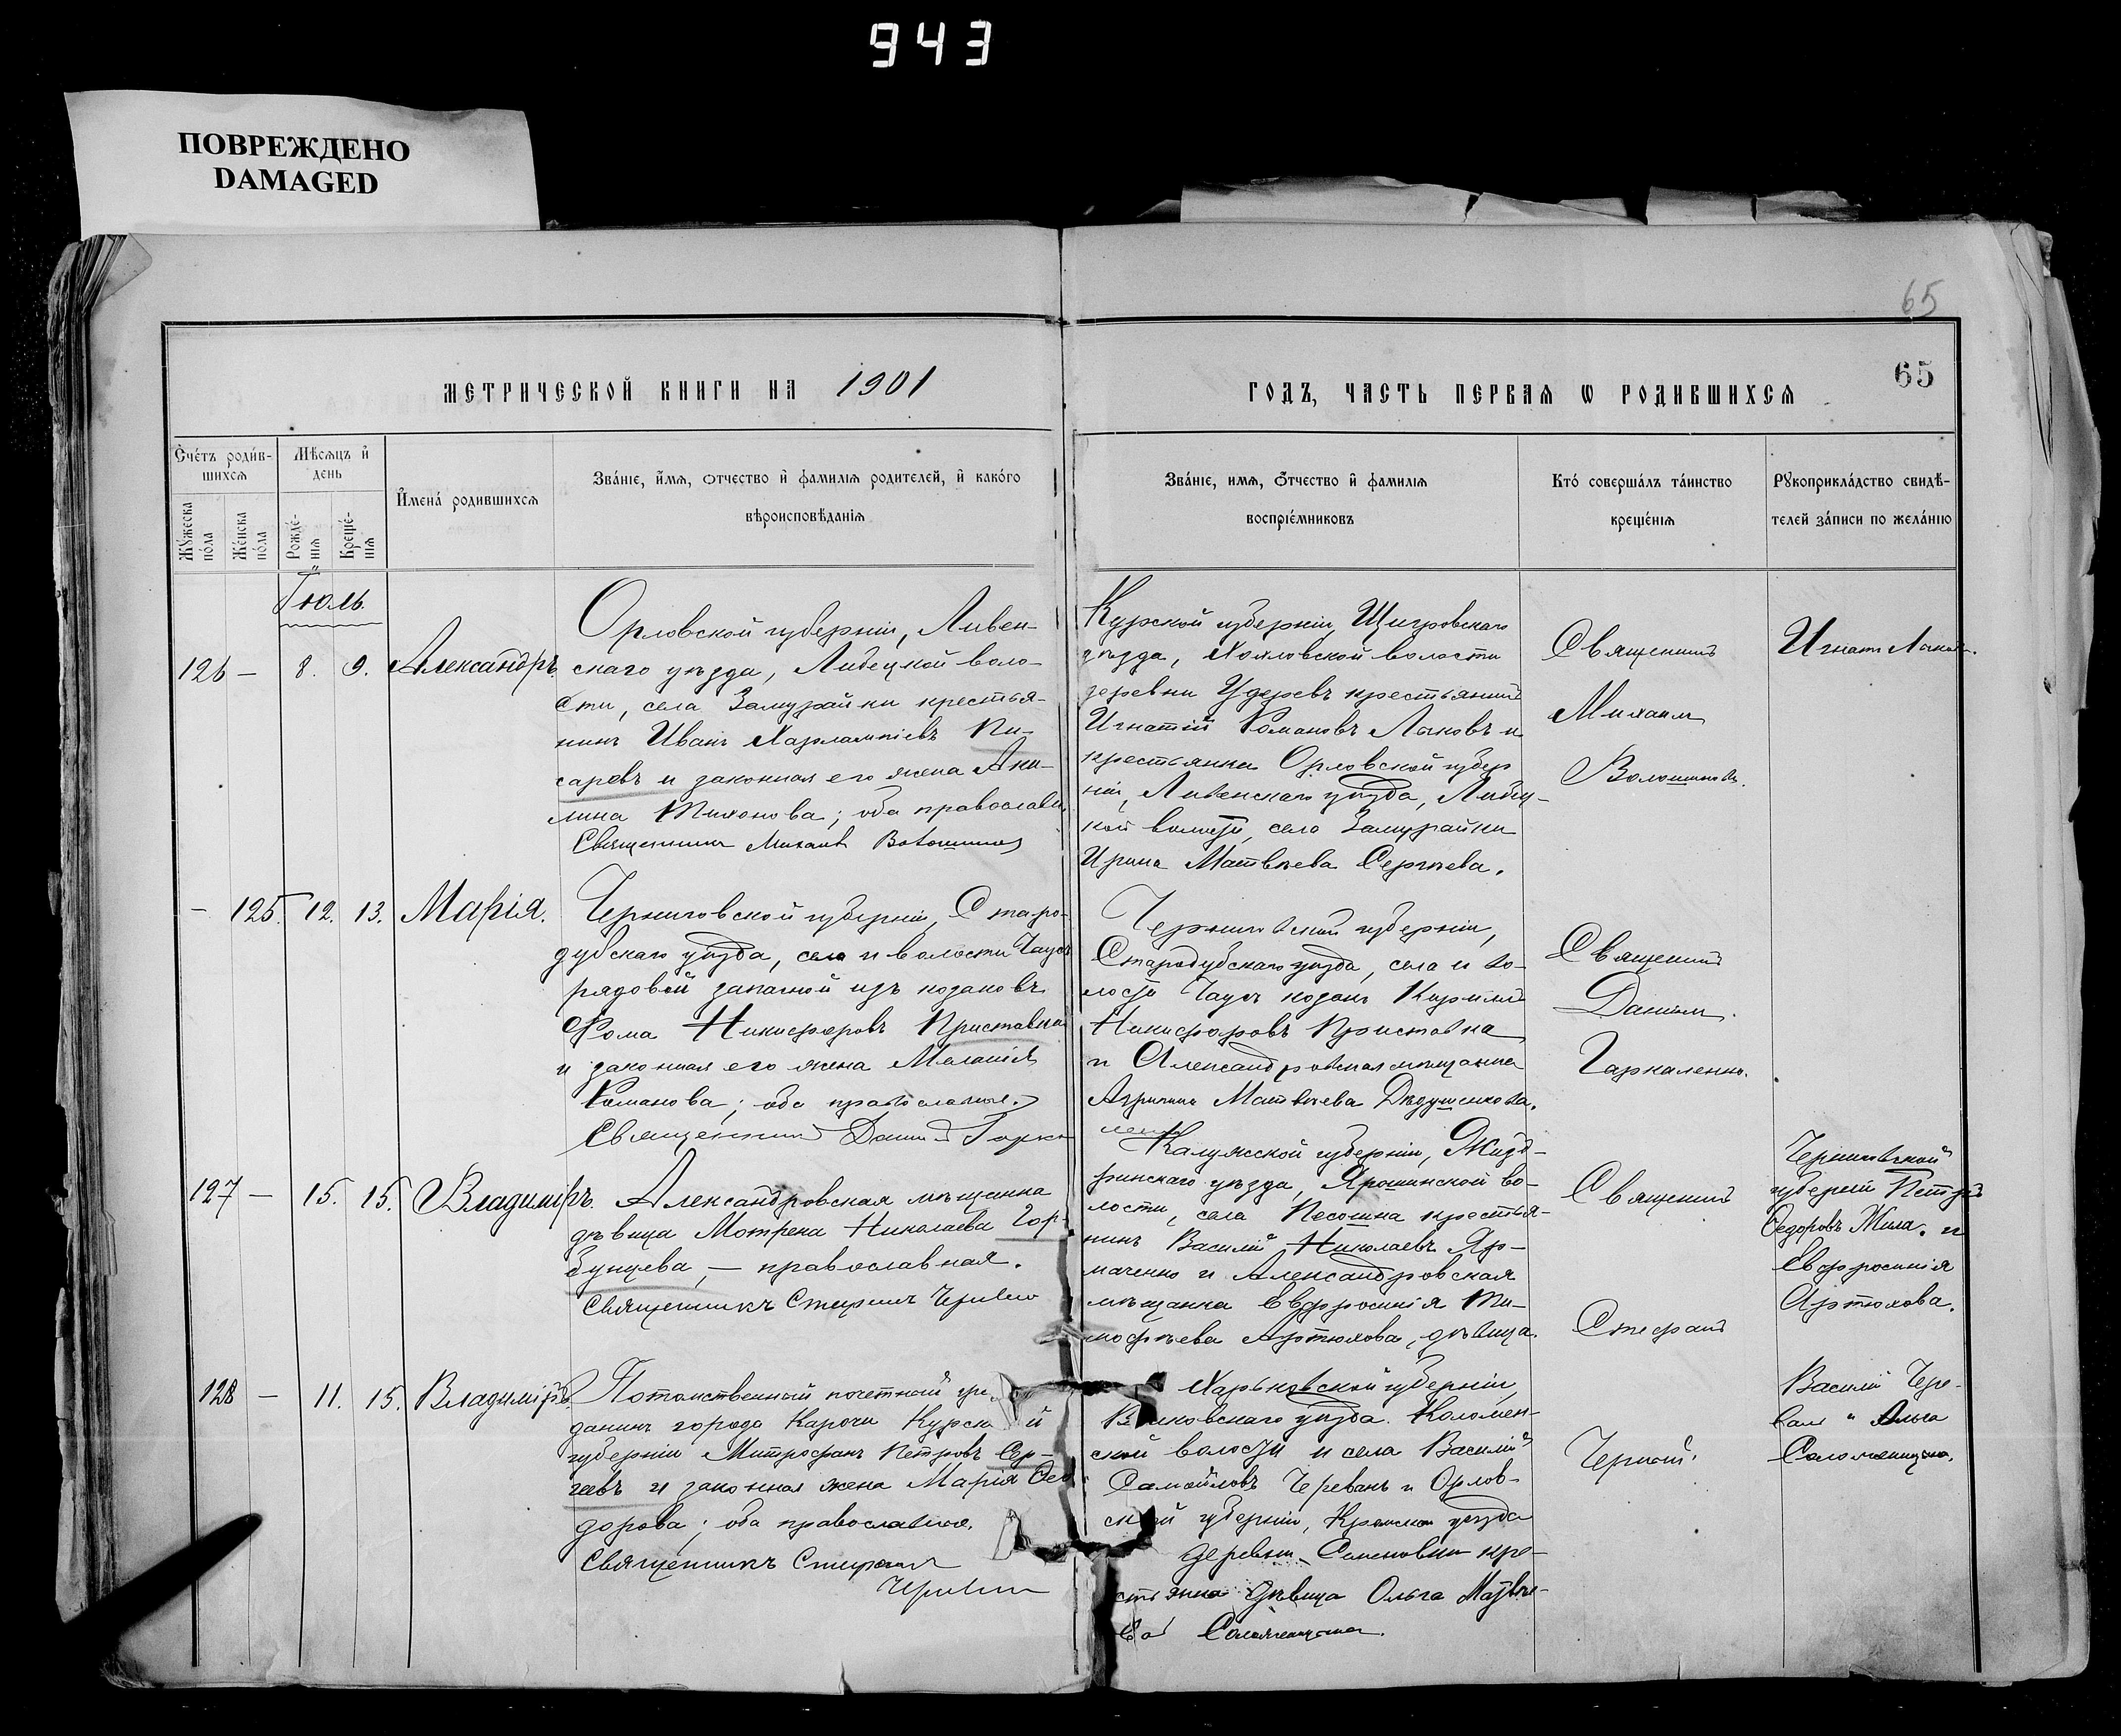 943
ПОВРЕЖДЕНО
DAMAGED
65
65
МЕТРИЧЕСКОЙ КНИГИ НА 1901
ГОДЪ, ЧАСТЬ ПЕРВАѦ Ѡ РОДИВШИХСѦ
Счетъ родив-
шихсѧ
Мѣсѧцъ и
день
Имена родившихсѧ
Званіе, имѧ, отчество и фамиліѧ родителей, и какого
вѣроисповѣданіѧ
Мужеска
пола
Женска
пола
Рожде-
ніѧ
Креще-
ніѧ
Званіе, имѧ, отчество и фамиліѧ
воспріемниковъ
Кто совершалъ таинство
крещеніѧ
Рꙋкоприкладство свидѣ-
телей записи по желанію
Іюль.
126 — 8. 9. Александръ
Орловской губерніи, Ливен-
скаго уѣзда, Ливецкой воло-
сти, села Замурайки крестья-
нинъ Иванъ Харлампіевъ Пи-
саревъ и законная его жена Аку-
лина Тихонова; оба православн.
Священникъ Михаилъ Волошиновъ
Курской губерніи, Щигровскаго
уѣзда, Хохловской волости
деревни Удеревъ крестьянинъ
Игнатій Романовъ Лыковъ и
крестьянка Орловской губер
ніи, Ливенскаго уѣзда, Ливец-
кой волости, село Замурайки
Ирина Матвѣева Сергѣева.
Священникъ
Михаилъ
Волошиновъ.
Игнат Лыков.
— 125. 12. 13. Марія.
Черниговской губерніи, Старо-
дубскаго уѣзда, села и волости Чаусъ
рядовой запасной изъ козаковъ
Ѳома Никифоровъ Приставка
и законная его жена Меланія
Романова; оба православные.
Священникъ Даніилъ Гарка
ленко
Черниговской губерніи,
Стародубскаго уѣзда, села и во-
лости Чаусъ козакъ Кириллъ
Никифоровъ Приставка
и Александровская мѣщанка
Агрипина Матвѣева Дѣдушенкова.
Священникъ
Даніилъ
Гаркаленко.
127 — 15. 15. Владиміръ.
Александровская мѣщанка
дѣвица Мотрена Николаева Гор-
бунцева, — православная.
Священникъ Стефанъ Черный
Калужской губерніи, Жизд-
ринскаго уѣзда, Ярошинской во-
лости, села Песошна крестья-
нинъ Василій Николаевъ Яр-
маченко и Александровская
мѣщанка Евфросинія Ти-
мофѣева Артюхова, дѣвица.
Священникъ
Стефанъ
Черниговской
губерніи Петръ
Ѳедоровъ Жила. и
Евфросинія
Артюхова.
128 — 11. 15. Владиміръ.
Потомственный почетный гра
данинъ города Карочи Курск й
губерніи Митрофанъ Петровъ Сер-
геевъ и законная жена Марія Ѳео
дорова; оба православные.
Священникъ Стефанъ
Черный
Харьковской губерніи
В лковскаго уѣзда. Коломен-
ской волости и села Василій
Самойловъ Черевань и Орлов-
ск й губерніи, Кромска уѣзда
деревни Семеновки кре-
стьянка дѣвица Ольга Матвѣе-
ва
Черный.
Василій Чере-
вань и Ольга